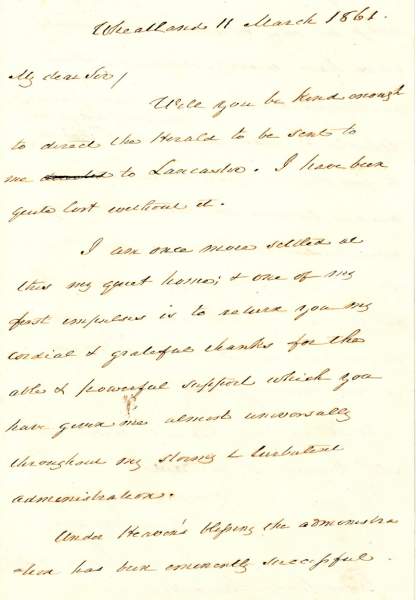 Wheatland 11 March 1861.
My dear Sir/
Will you be kind enough
to direct the Herald to be sent to
me directed to Lancaster. I have been
quite lost without it.
I am once more settled at
this my quiet home; & one of my
first impulses is to return you my
cordial & grateful thanks for the
able & powerful support which you
have given me almost universally
throughout my stormy & turbulent
administration.
Under Heaven's blessing the administra
tion has been eminently successful.